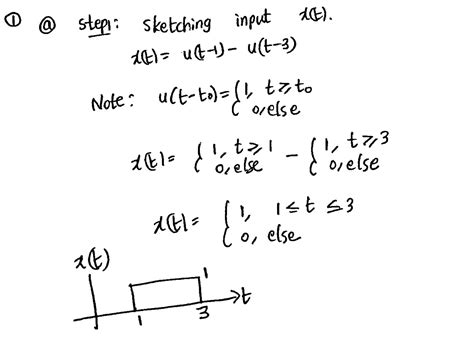 ① ⓐ step1: sketching input x(t).
x(t) = u(t-1) - u(t-3)
Note: u(t-t₀) = { 1, t ≥ t₀
0, else
x(t) = { 1, t ≥ 1 - { 1, t ≥ 3
0, else 0, else
x(t) = { 1, 1 ≤ t ≤ 3
0, else
x(t)
1
t
1 3